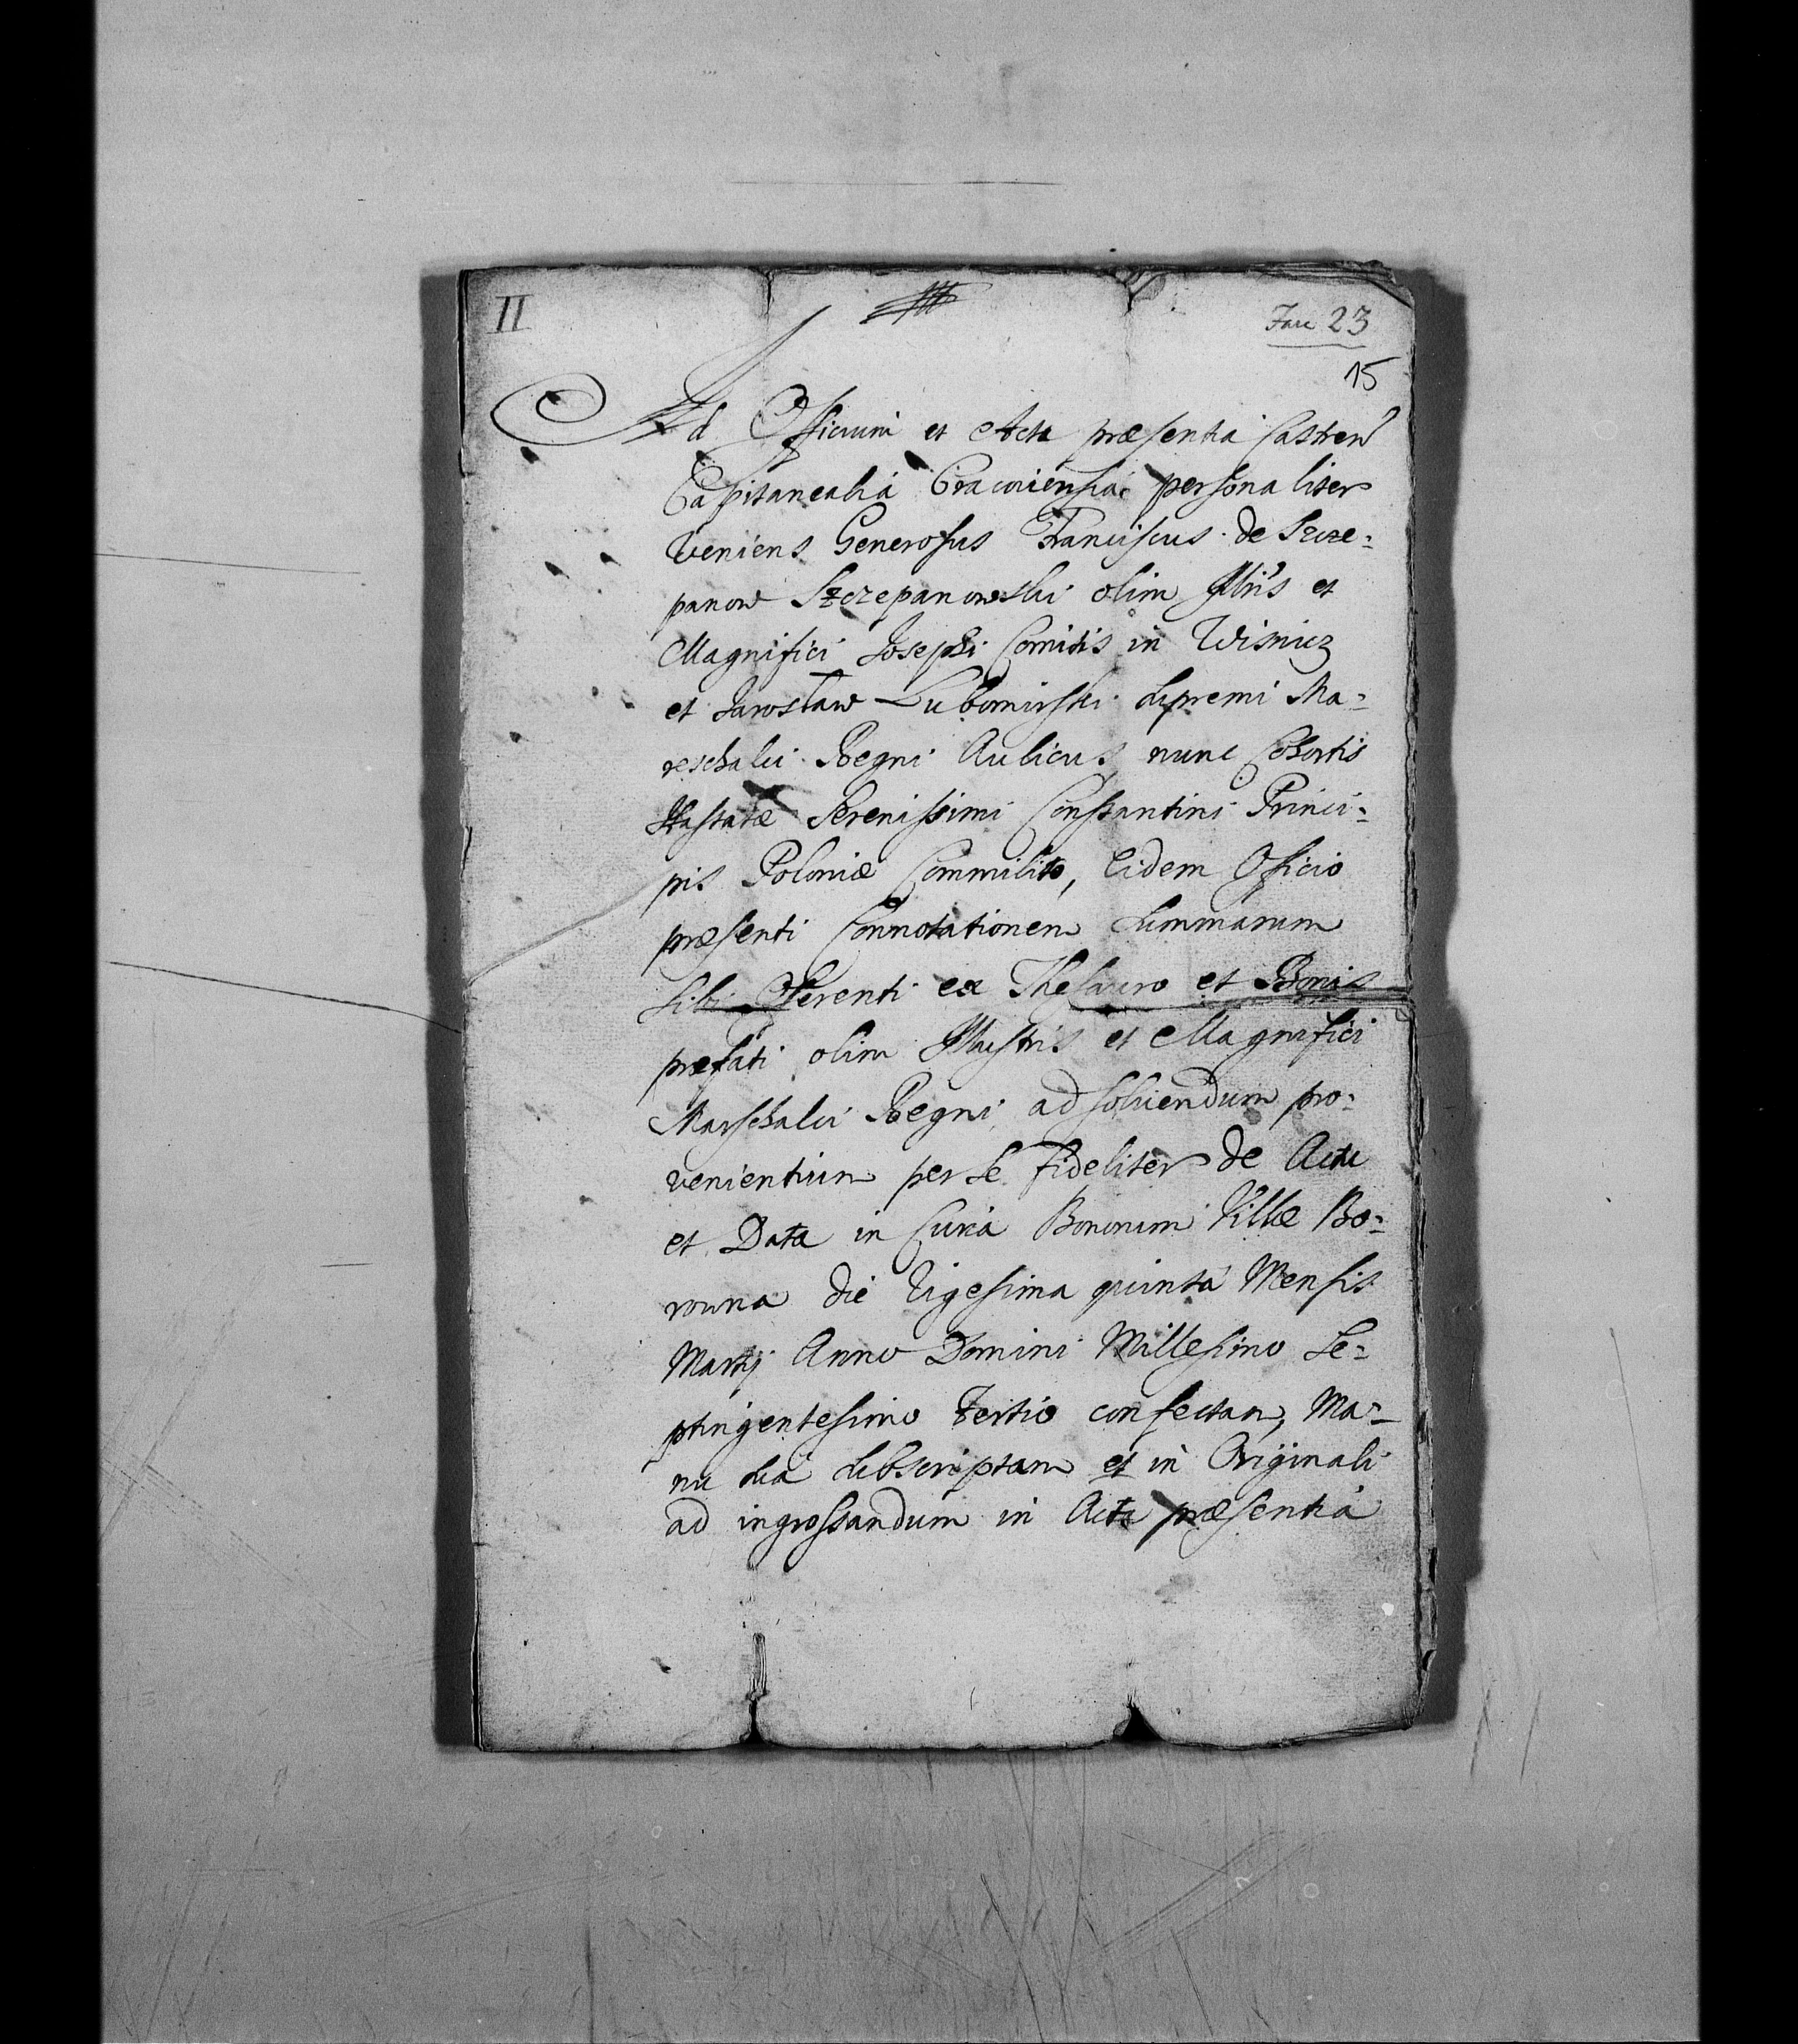 II
Fasc 23
15
Ad Officium et Acta præsentia Castren
Capitanealia Cracoviensia personaliter
veniens Generosus Franciscus de Szcze=
panow Szczepanowski olim Illris et
Magnifici Josephi Comitis in Wisnicz
et Jarosław Lubomirski Supremi Ma=
reschalci Regni Aulicus nunc Cohortis
Hastatæ Serenissimi Constantini Princi=
pis Poloniæ Commilito, Eidem Officio
præsenti Connotationem Summarum
Sibi Offerenti ex Thesauro et Bonis
præfati olim Illustris et Magnifici
Marschalci Regni ad solvendum pro=
venientium per se fideliter de Actu
et Data in Curia Bonorum Villæ Bo=
rowna die Vigesima quinta Mensis
Martij Anno Domini Millesimo Se=
ptingentesimo Tertio confectam, Ma=
nu sua subscriptam et in Originali
ad ingrossandum in Acta præsentia